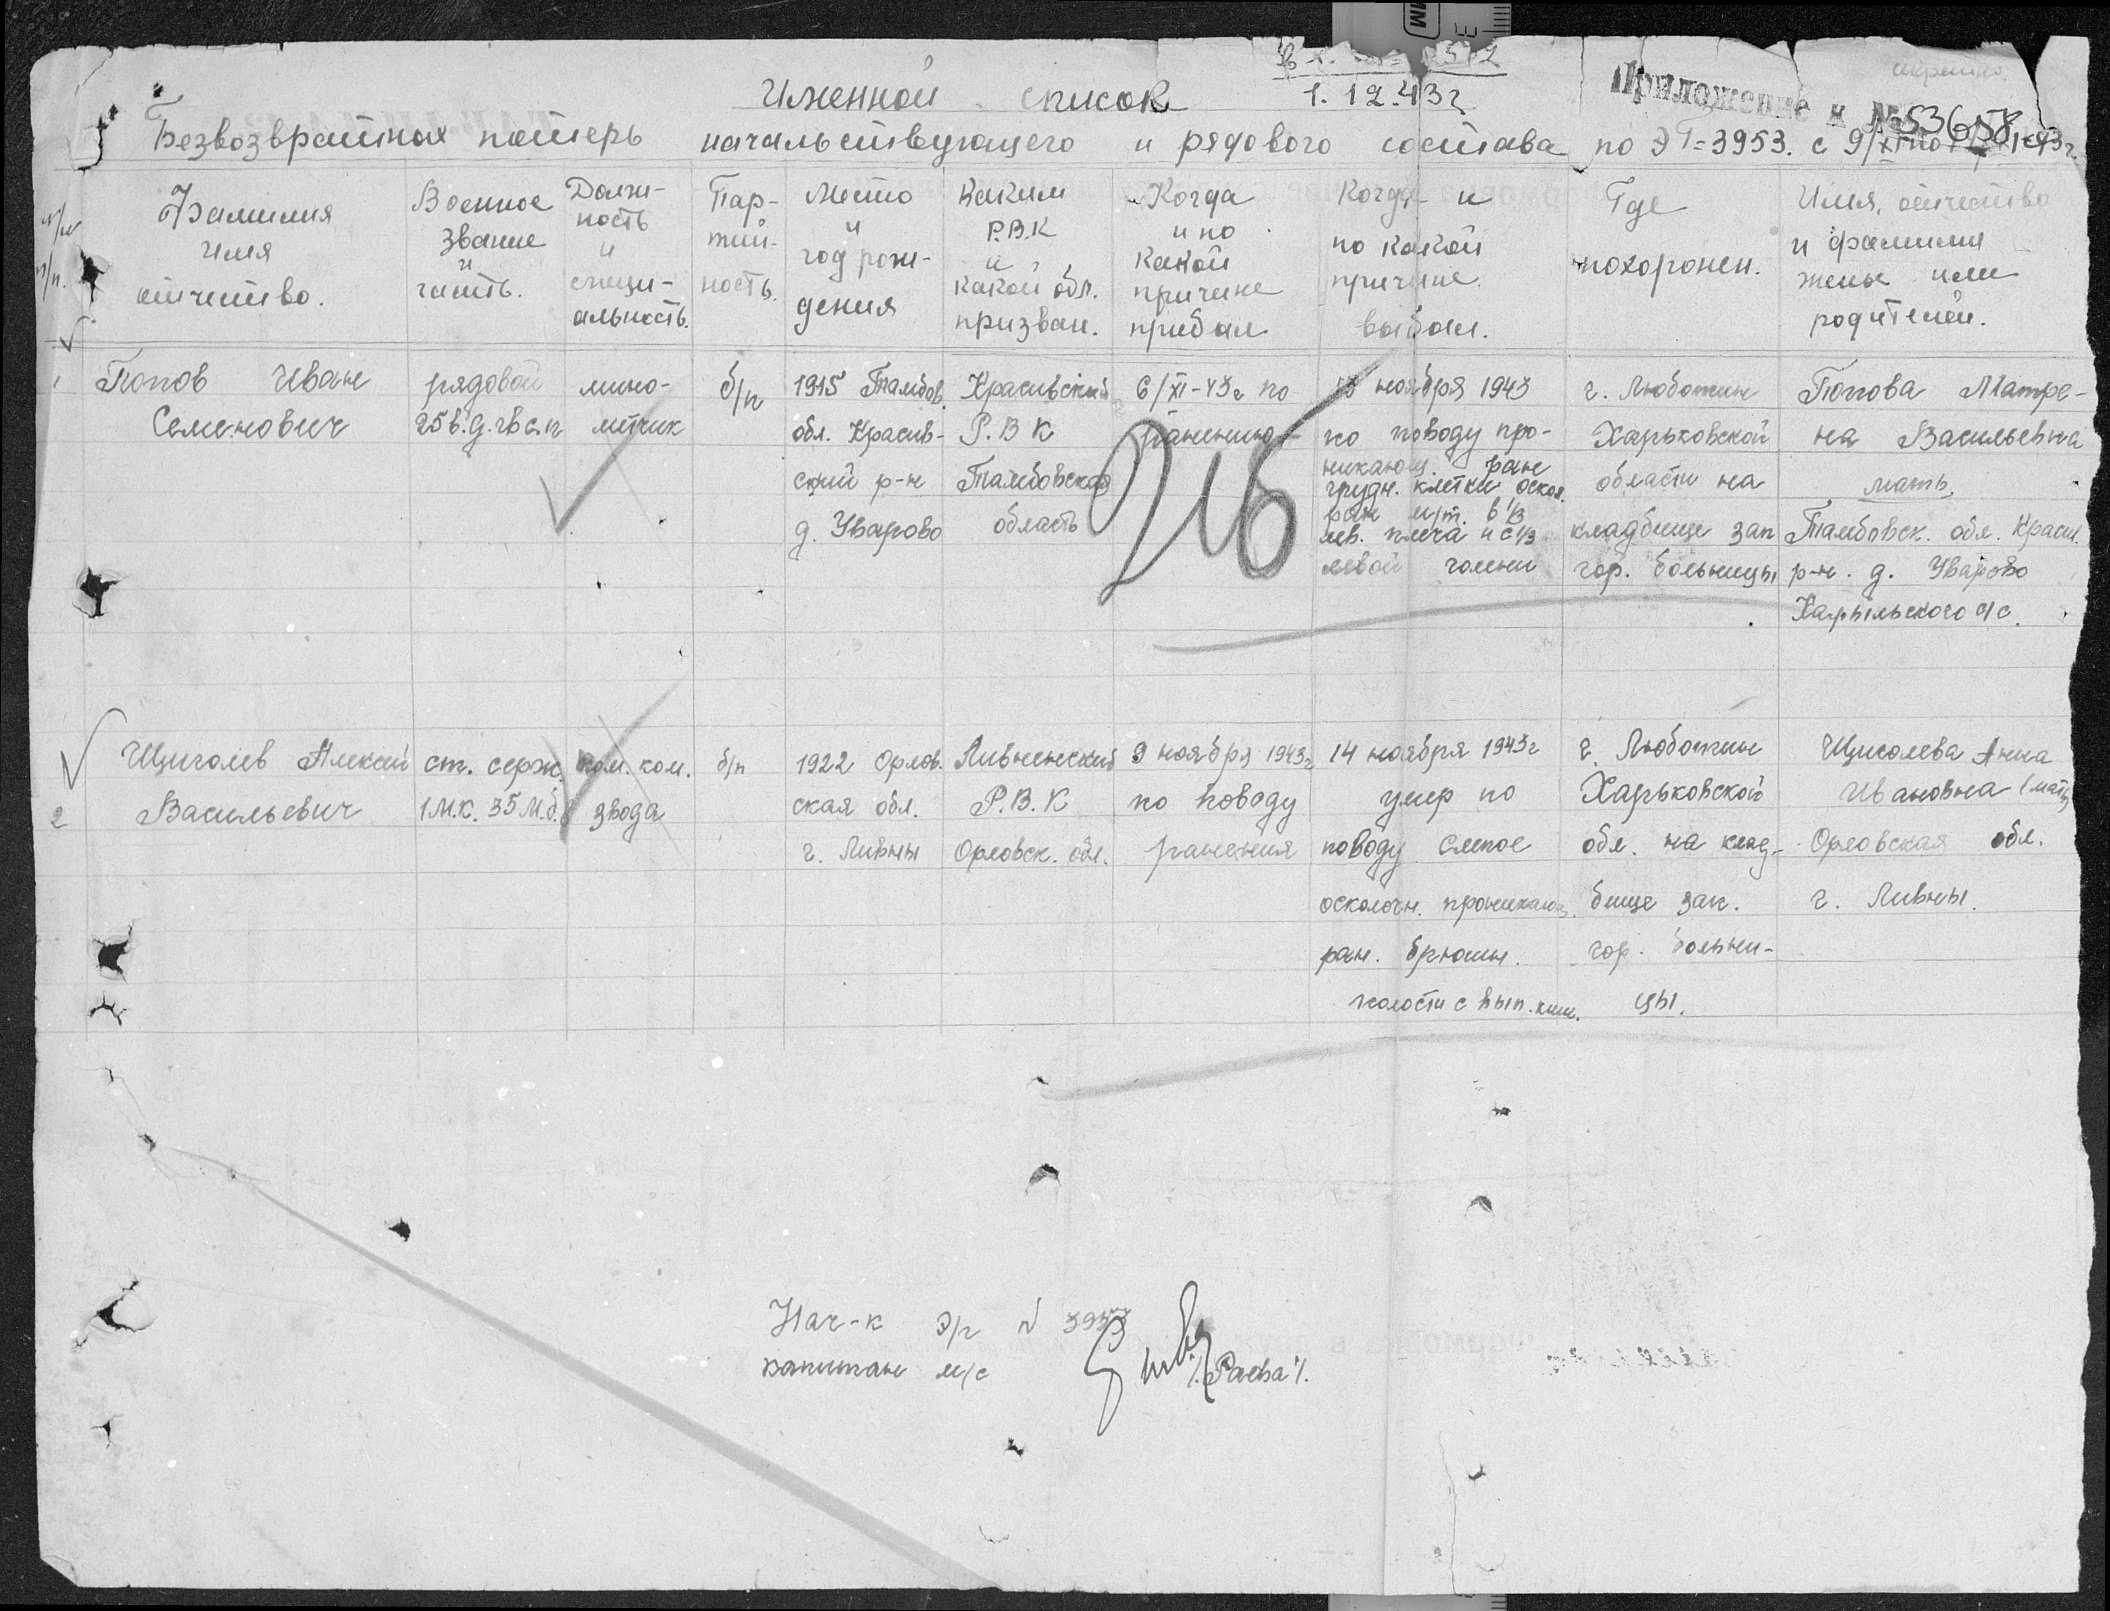 1.12.43г
Именной список
Приложение к №
Безвозвратных потерь начальствующего и рядового состава по ЭГ=3953. с 9/XI по
№/№ п/п.
Фамилия
имя
отчество.
Военное
звание
и
часть.
Долж-
ность
и
специ-
альность.
Пар-
тий-
ность.
Место
и
год рож-
дения
Каким
Р.В.К
и
какой обл.
призван.
Когда
и по
какой
причине
прибыл
Когда и
по какой
причине
выбыл.
Где
похоронен.
Имя, отчество
и фамилия
жены или
родителей.
1
Попов Иван
Семенович
рядовой
25 в.д. гв с.п
мино-
метчик
б/п
1915 Тамбов.
обл. Красив-
ский р-н
д. Уварово
Красивский
Р.В К
Тамбовская
область
6/XI-43г по
ранению
13 ноября 1943
по поводу про-
никающ. ран
грудн. клетки оскол.
ран м/т. в/3
лев. плеча и с/3
левой голени
г. Люботин
Харьковской
области на
кладбище зап
гор. больницы
Попова Матре-
на Васильевна
мать.
Тамбовск. обл. Красив.
р-н. д. Уварово
с/с.
216
2
Щиголев Алексей
Васильевич
ст. серж.
1 М.К. 35 М.б.
пом. ком.
звода
б/п
1922 Орлов.
ская обл.
г. Ливны
Ливненский
Р.В.К
Орловск. обл.
9 ноября 1943г
по поводу
ранения
14 ноября 1943г
умер по
поводу слепое
осколочн. проникающ.
ран. брюшн.
полости с вып. киш.
г. Люботин
Харьковской
обл. на клад-
бище зап.
гор. больни-
цы.
Щиголева Анна
Ивановна (мать)
Орловская обл.
г. Ливны.
Нач-к э/г № 3953
капитан м/с